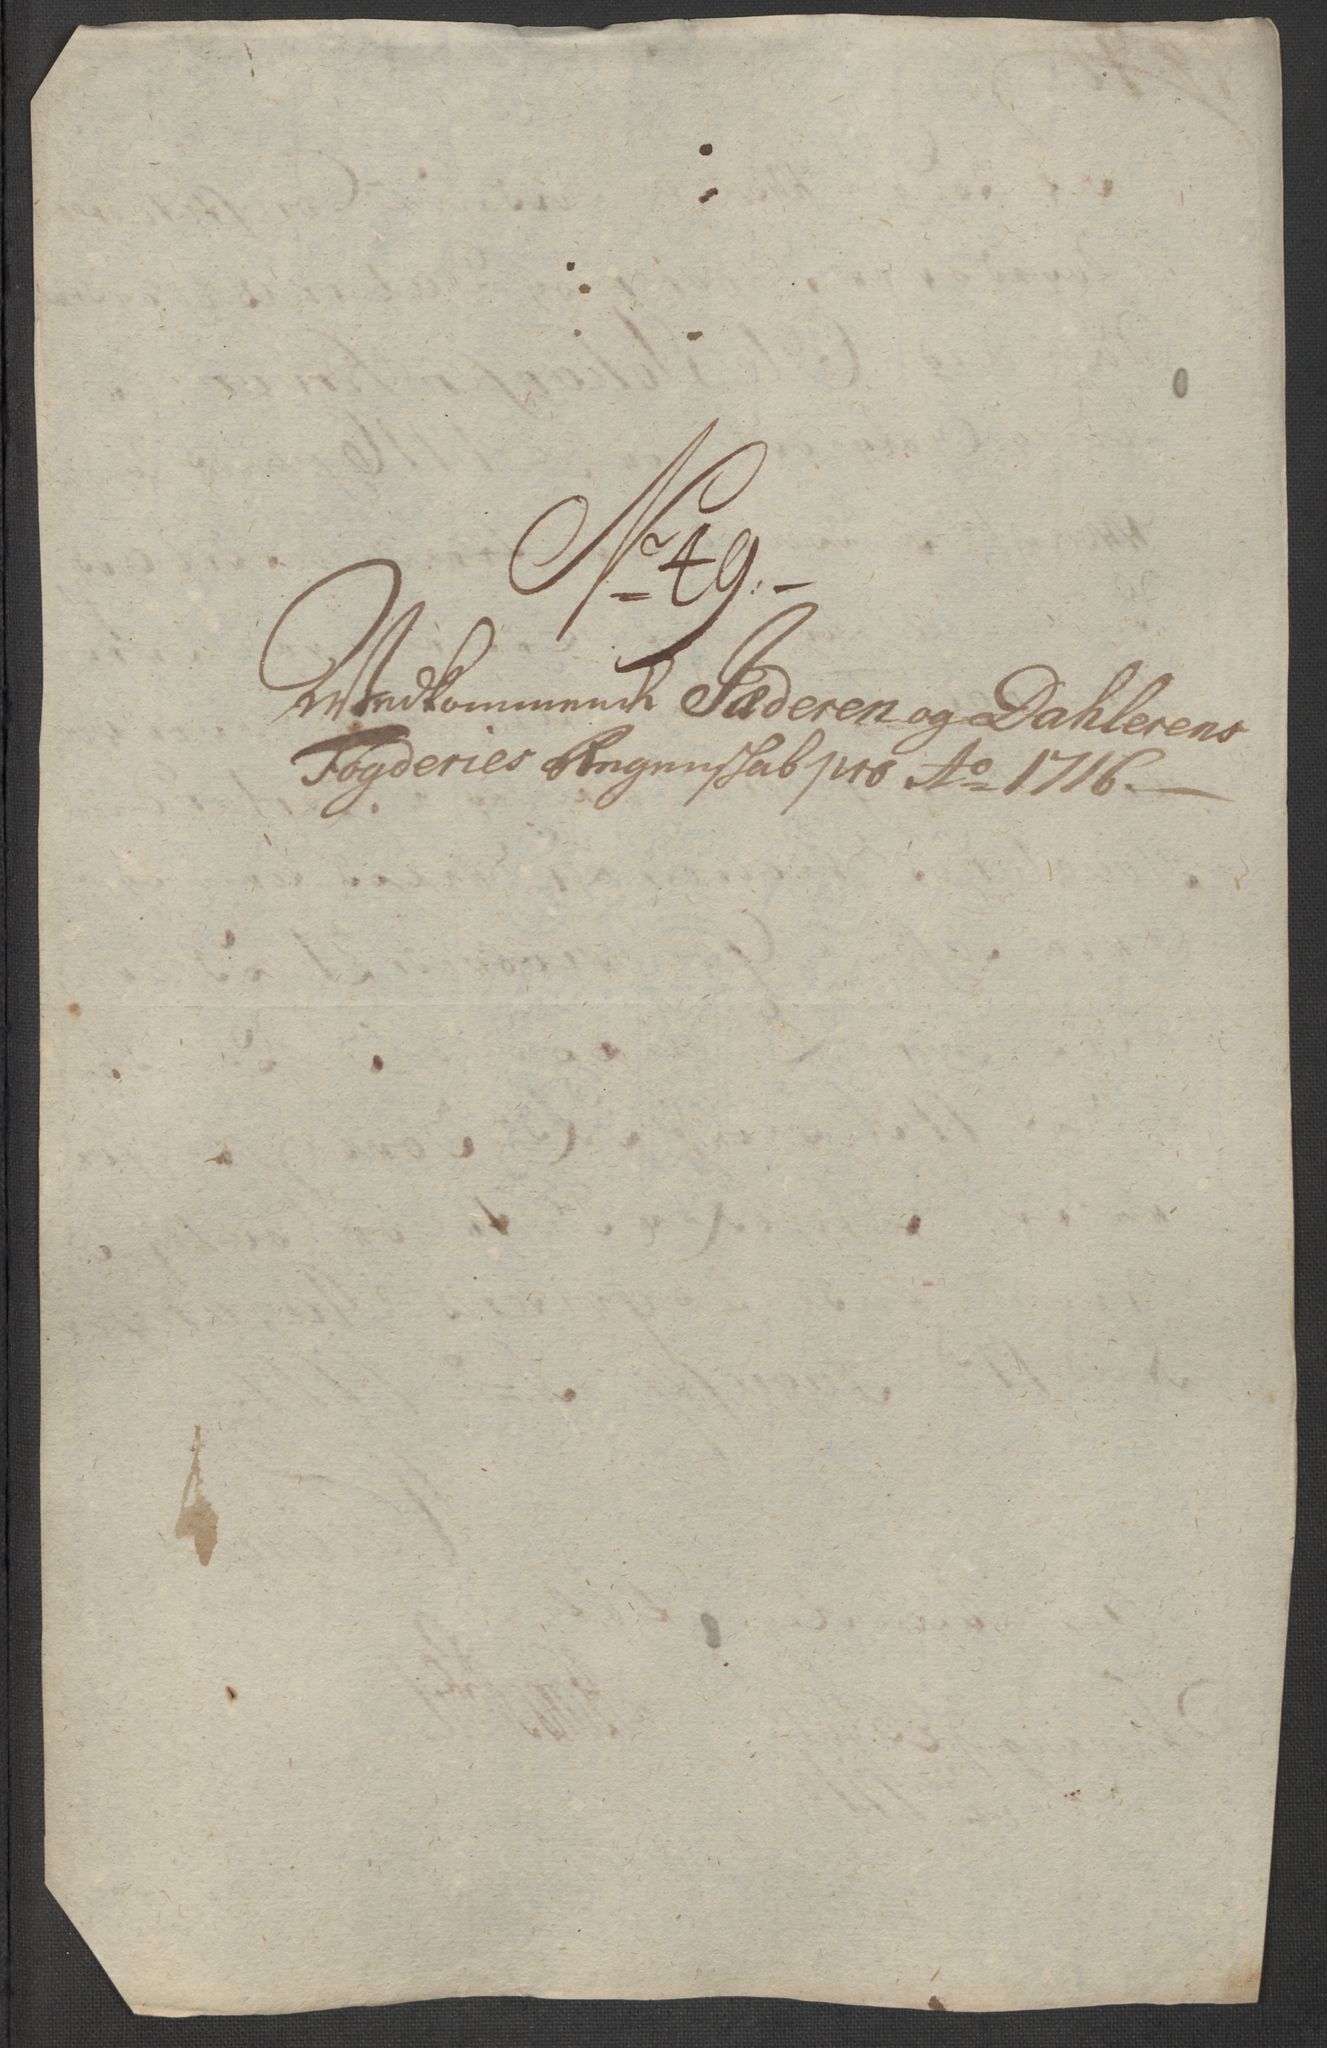 No 49.
Wedkommende Jæderen og Dahlerens
Fogderies Regnnskab pro Ao 1716.